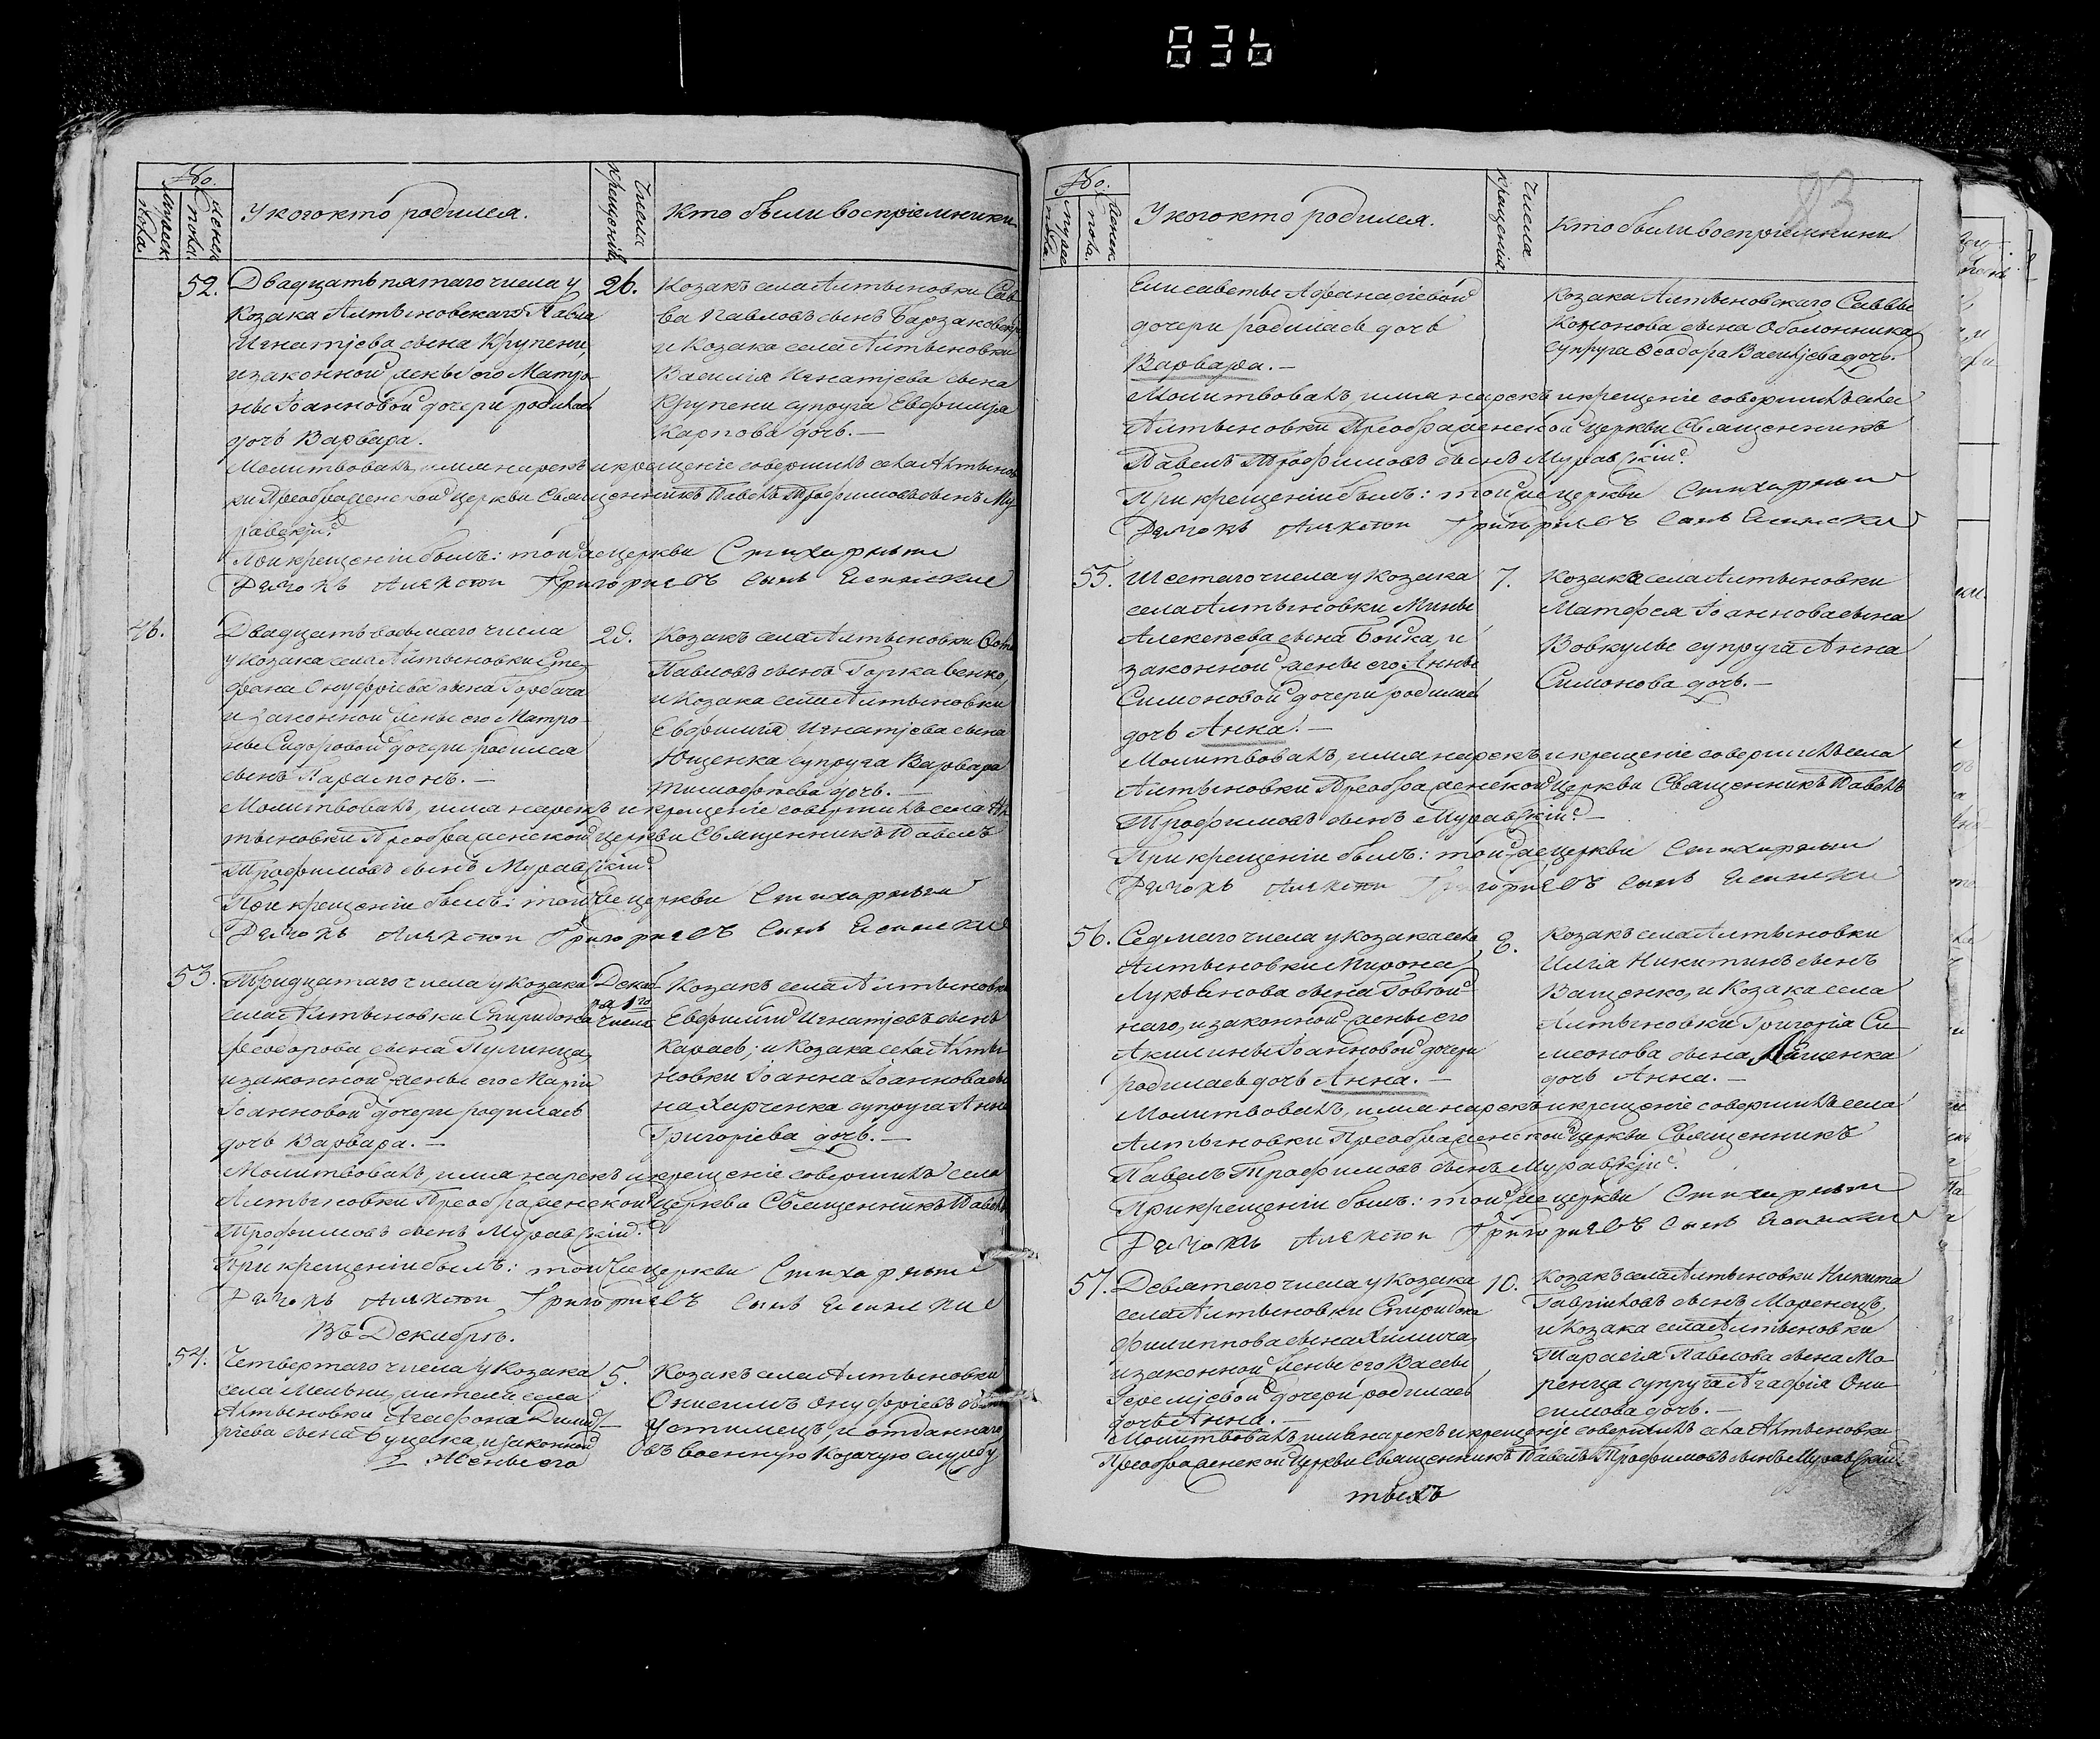 836
№.
мужеск. пола.
женск. пола.
У кого кто родился.
Числа крещенія.
Кто были воспріемники
52.
Двадцять пятаго числа у
Козака Алтыновскаго Павла
Игнатіева сына Крупени,
и законной жены его Матро-
ны Іоанновой дочери родилась
дочь Варвара.
26.
Козакъ села Алтыновки Сав-
ва Павловъ сынъ
и Козака села Алтыновки
Василія Игнатіева сына
Крупени супруга Евфимія
Карпова дочь.—
Молитвовалъ, имя нарекъ и крещеніе совершилъ села Алтынов
ки Преображенской церкви Священникъ Павелъ Трофимовъ сынъ Му
равскій.
При крещеніи былъ: той же церкви Стихарный
Дячокъ Григориевъ сынъ
46.
Двадцать восьмаго числа
у Козака села Алтыновки Сте-
фана Онуфріева сына Горбача
и законной жены его Матро-
ны Сидоровой дочери родился
сынъ Парамонъ.—
Козакъ села Алтыновки
Павловъ сынъ Горкавенко,
и Козака села Алтыновки
Евфимія Игнатіева сына
Ющенка супруга Варвара
Тимофѣева дочь.—
Молитвовалъ, имя нарекъ и крещеніе совершилъ села Ал
тыновки Преображенской церкви Священникъ Павелъ
Трофимовъ сынъ Муравскій.
При крещеніи былъ: той же церкви Стихарный
Дячокъ Григориевъ сынъ
53.
Тридцатаго числа у Козака
села Алтыновки Спиридона
Феодорова сына Пулинца,
и законной жены его Маріи
Іоанновой дочери родилась
дочь Варвара.—
Декаб
ра 1го
числа
Козакъ села Алтыновки
Евфимій Игнатіевъ сынъ
Карась; и Козака села Алты
новки Іоанна Іоаннова сы
на Харченка супруга Анна
Григоріева дочь.—
Молитвовалъ, имя нарекъ и крещеніе совершилъ села
Алтыновки Преображенской церкви Священникъ Павелъ
Трофимовъ сынъ Муравскій.
При крещеніи былъ: той же церкви Стихарный
Дячокъ Григориевъ сынъ
Въ Декабрѣ.
54.
Четвертаго числа у Козака
села Мельни, жителя села
Алтыновки Агафона Дмит-
ріева сына и законной
жены его
5.
Козакъ села Алтыновки
Онисимъ Онуфріевъ сынъ
Устимецъ, и отданнаго
въ военную Козачую службу
83
№.
мужес. пола.
женск. пола.
У кого кто родился.
Числа крещенія
Кто были воспріемники
Елисаветы Афанасіевой
дочери родилась дочь
Варвара.—
Козака Алтыновскаго Саввы
Кононова сына Оболонника
супруга Феодора Васильева дочь.
Молитвовалъ, имя нарекъ и крещеніе совершилъ села
Алтыновки Преображенской церкви Священникъ
Павелъ Трофимовъ сынъ Муравскій.
При крещеніи былъ: той же церкви Стихарный
Дячокъ Григориевъ сынъ
55.
Шестаго числа у Козака
села Алтыновки Мины
Алексѣева сына Бойка, и
законной жены его Анны
Симоновой дочери родилась
дочь Анна.—
7.
Козака села Алтыновки
Матфея Іоаннова сына
Вовкулы супруга Анна
Симонова дочь.—
Молитвовалъ, имя нарекъ и крещеніе совершилъ села
Алтыновки Преображенской церкви Священникъ Павелъ
Трофимовъ сынъ Муравскій.—
При крещеніи былъ: той же церкви Стихарный
Дячокъ Григориевъ сынъ
56.
Седмаго числа у Козака села
Алтыновки Мирона
Лукьянова сына
наго, и законной жены его
Акилины Іоанновой дочери
родилась дочь Анна.—
8.
Козакъ села Алтыновки
Илія Никитинъ сынъ
Ващенко, и Козака села
Алтыновки Григорія Си-
меонова сына
дочь Анна.—
Молитвовалъ, имя нарекъ и крещеніе совершилъ села
Алтыновки Преображенской церкви Священникъ
Павелъ Трофимовъ сынъ Муравскій.
При крещеніи былъ: той же церкви Стихарный
Дячокъ Григориевъ сынъ
57.
Девятаго числа у Козака
села Алтыновки Спиридона
Филиппова сына Химича
и законной жены его Вассы
Іереміевой дочери родилась
дочь Анна.—
10.
Козакъ села Алтыновки Никита
Гавріиловъ сынъ Моренецъ,
и Козака села Алтыновки
Тарасія Павлова сына Мо-
ренца супруга Агафія Они-
симова дочь.—
Молитвовалъ имя нарекъ и крещеніе совершилъ села Алтыновки
Преображенской Церкви Священникъ Павелъ Трофимовъ сынъ Муравскій.